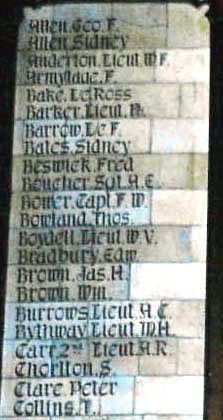 Allen. Geo. F.
Allen. Sidney
Anderton. Lieut. W. F.
Armytage. F.
Bake. Le Ross
Barker. Lieut. N.
Barrow. Le F.
Bates. Sidney
Beswick. Fred
Boucher. Sgt. A. E.
Bower. Capt. F. W.
Bowland. Thos.
Boydell. Lieut. W. V.
Bradbury. Edw.
Brown. Jas. H.
Brown. Wm.
Burrows. Lieut. A. C.
Bythway. Lieut. W. H.
Carr. 2nd Lieut. A. R.
Chorlton. S.
Clare. Peter
Collins. T.